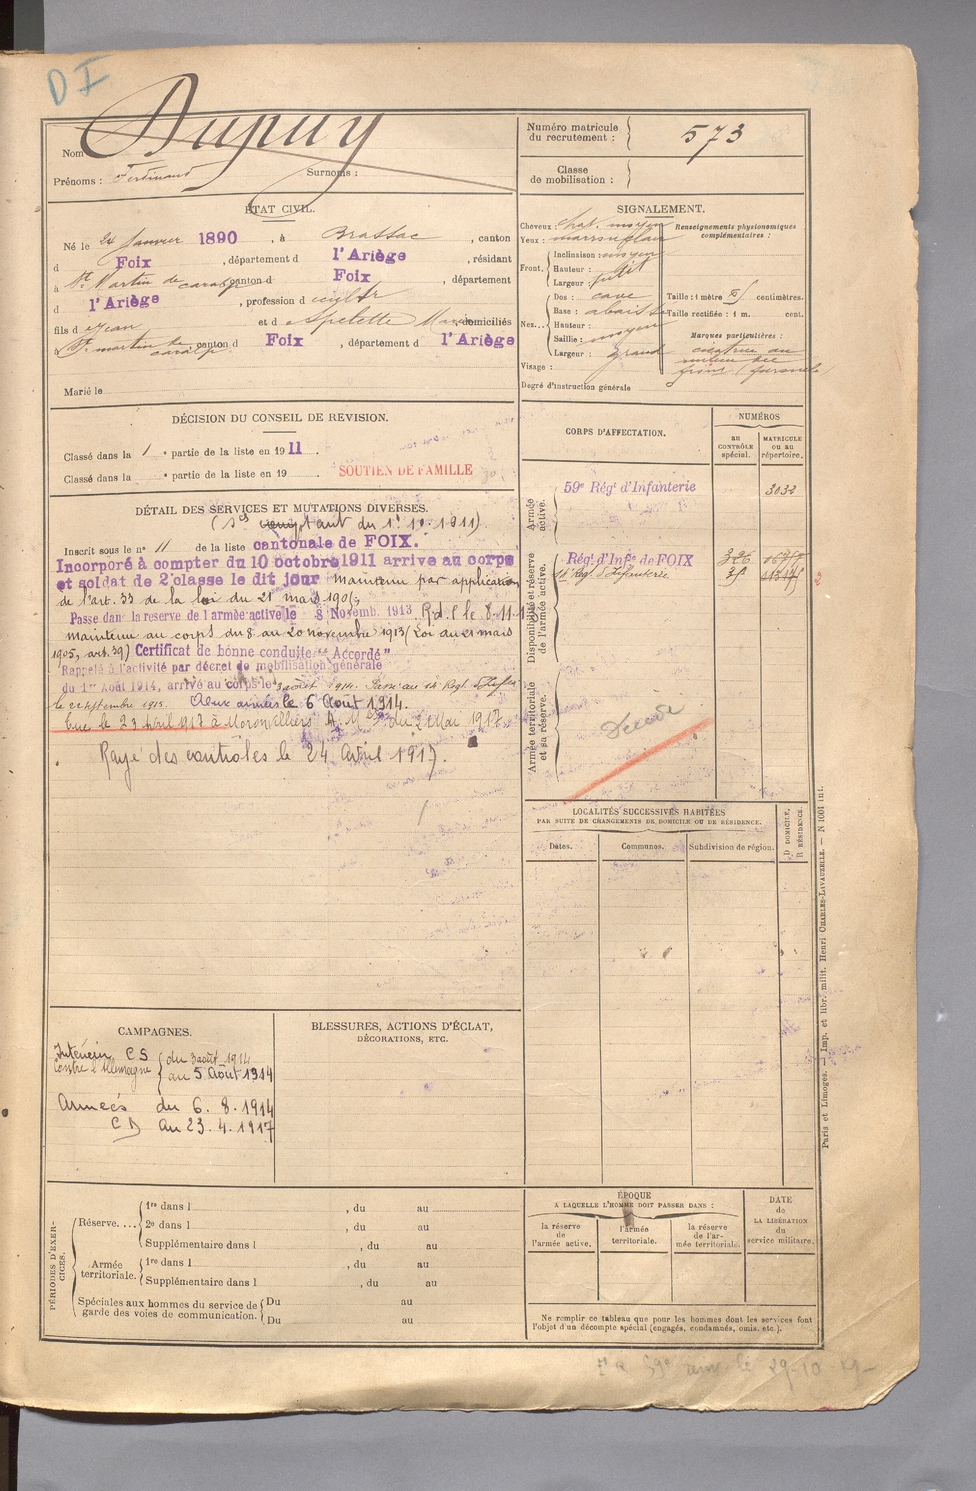 D I
Nom Dupuy
Prénoms : Ferdinand Surnoms :
Numéro matricule du recrutement : 573
Classe de mobilisation :
ÉTAT CIVIL.
Né le 24 Janvier 1890, à Brassac, canton
d Foix, département d l'Ariège, résidant
à St Martin de caralp canton d Foix, département
d l'Ariège, profession d cultr
fils d Jean et d Espelette domiciliés
à St martin de caralp canton d Foix, département d l'Ariège
Marié le
SIGNALEMENT.
Cheveux : chat. moyen
Yeux : marron clair
Front. Inclinaison : moyen
Hauteur : petit
Largeur :
Nez... Dos : cave
Base : abaissée
Hauteur :
Saillie : moyen
Largeur : grand
Visage :
Degré d'instruction générale
Renseignements physionomiques complémentaires :
Taille : 1 mètre centimètres.
Taille rectifiée : 1 m. cent.
Marques particulières :
cicatrice au
milieu du
front (furoncle)
DÉCISION DU CONSEIL DE REVISION.
Classé dans la 1e partie de la liste en 1911.
Classé dans la e partie de la liste en 19
SOUTIEN DE FAMILLE
DÉTAIL DES SERVICES ET MUTATIONS DIVERSES.
comptant du 1r 10. 1911)
Inscrit sous le n° 11 de la liste cantonale de FOIX.
Incorporé à compter du 10 octobre 1911 arrive au corps
et soldat de 2e classe le dit jour maintenu par application
de l'art. 33 de la loi du 21 mars 1905
Passe dan la reserve de l armée active le 8 Novemb. 1913 R.d.C le 8-11-13
maintenu au corps du 8 au 20 novembre 1913 (Loi du 21 mars
1905, art. 39) Certificat de bonne conduite "Accordé"
Rappelé à l'activité par décret de mobilisation générale
du 1er Août 1914, arrivé au corps le 3 août 1914. Passé au 14e Regt d'Infie
le 21 septembre 1915. Aux armées le 6 Août 1914.
Tué le 23 Avril 1917 à Moronvilliers A. M. du 2 Mai 1917.
Rayé des contrôles le 24 Avril 1917.
CORPS D'AFFECTATION.
NUMÉROS
au CONTRÔLE spécial.
MATRICULE ou au répertoire.
Armée active.
59e Régt d'Infanterie 3032
Disponibilité et réserve de l'armée active.
Régt d'Infie de FOIX 326
14e Reg. d'Infanterie
Armée territoriale et sa réserve.
Décédé
LOCALITÉS SUCCESSIVES HABITÉES
PAR SUITE DE CHANGEMENTS DE DOMICILE OU DE RÉSIDENCE.
Dates. Communes. Subdivision de région. D DOMICILE, R RÉSIDENCE.
CAMPAGNES.
Intérieur C S du 3 août 1914
Contre l'Allemagne au 5 Août 1914
Armées du 6. 8. 1914
C D au 23. 4. 1917
BLESSURES, ACTIONS D'ÉCLAT,
DÉCORATIONS, ETC.
PÉRIODES D'EXERCICES.
Réserve.... 1re dans l , du au
2e dans l , du au
Supplémentaire dans l , du au
Armée territoriale. 1re dans l , du au
Supplémentaire dans l , du au
Spéciales aux hommes du service de garde des voies de communication. Du au
Du au
ÉPOQUE
A LAQUELLE L'HOMME DOIT PASSER DANS :
la réserve de l'armée active.
l'armée territoriale.
la réserve de l'armée territoriale.
DATE de LA LIBÉRATION du service militaire.
Ne remplir ce tableau que pour les hommes dont les services font
l'objet d'un décompte spécial (engagés, condamnés, omis, etc.).
Paris et Limoges. — Imp. et libr. milit. Henri CHARLES-LAVAUZELLE. — N 1001 int.
le 29-10-